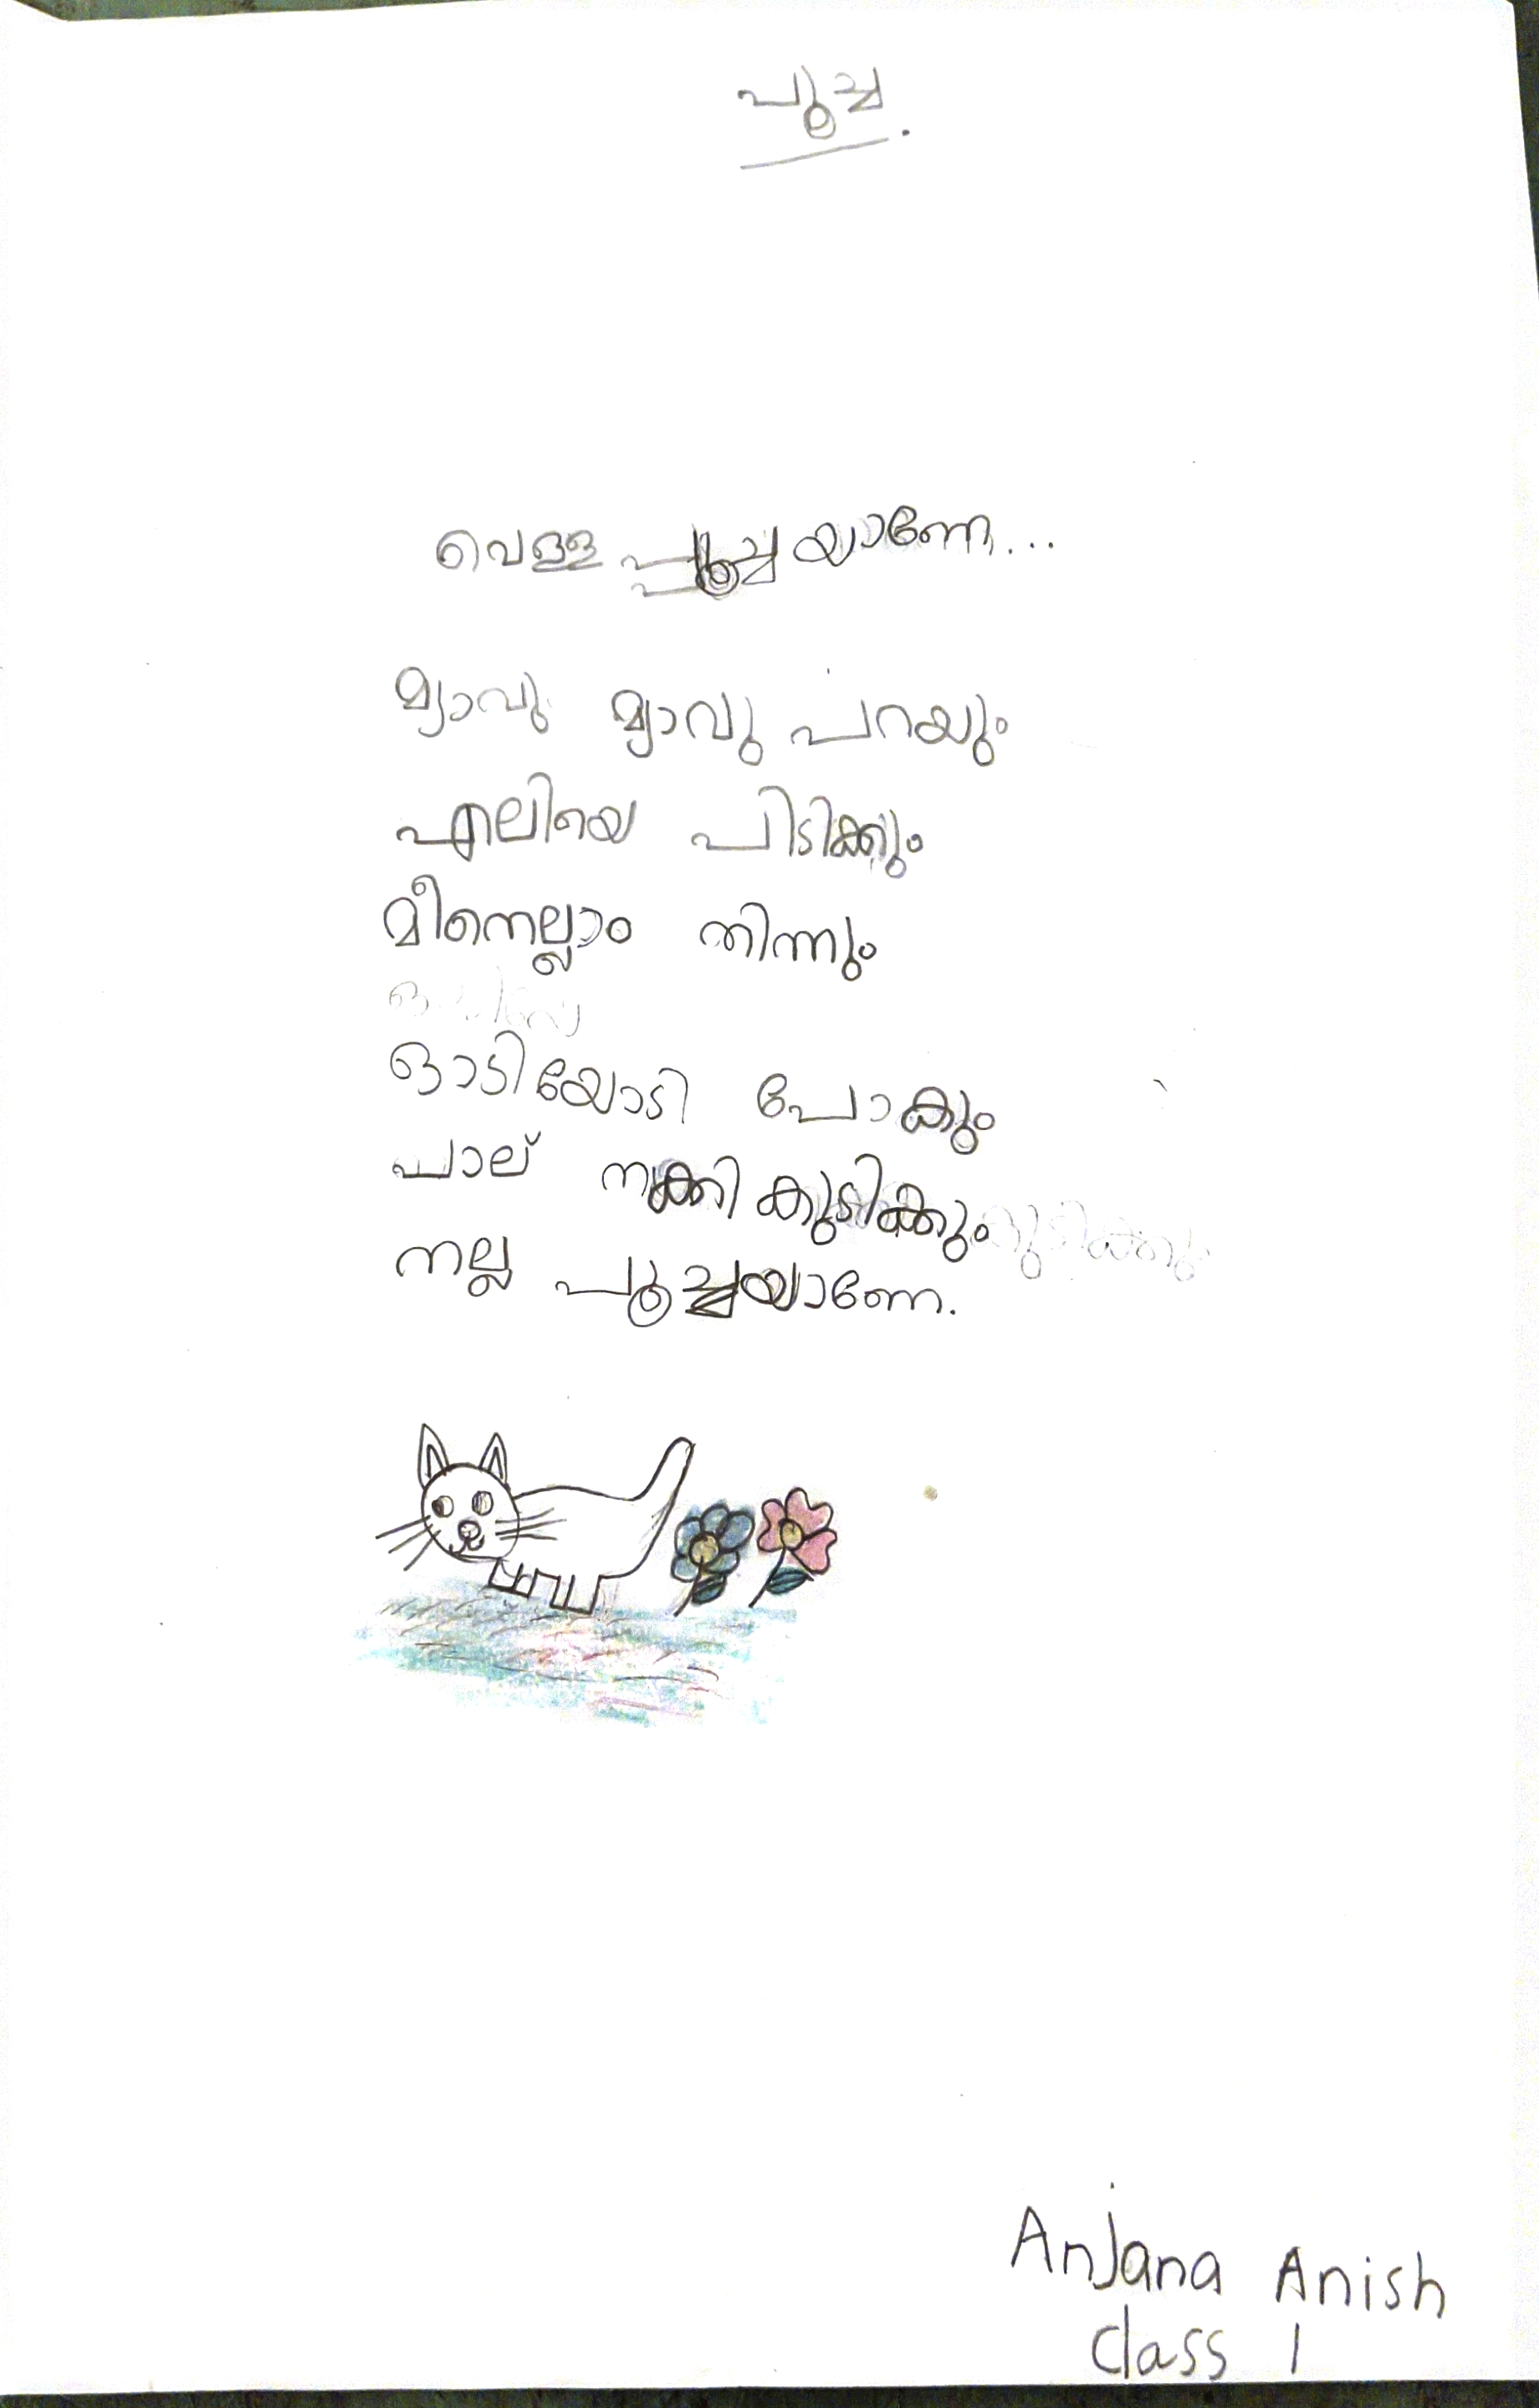 പൂച്ച.
വെള്ള പൂച്ചയാണേ...
മ്യാവു മ്യാവു പറയും
എലിയെ പിടിക്കും
മീനെല്ലാം തിന്നും
ഓടിയോടി പോകും
പാല് നക്കി കുടിക്കും
നല്ല പൂച്ചയാണേ.
Anjana Anish
class 1